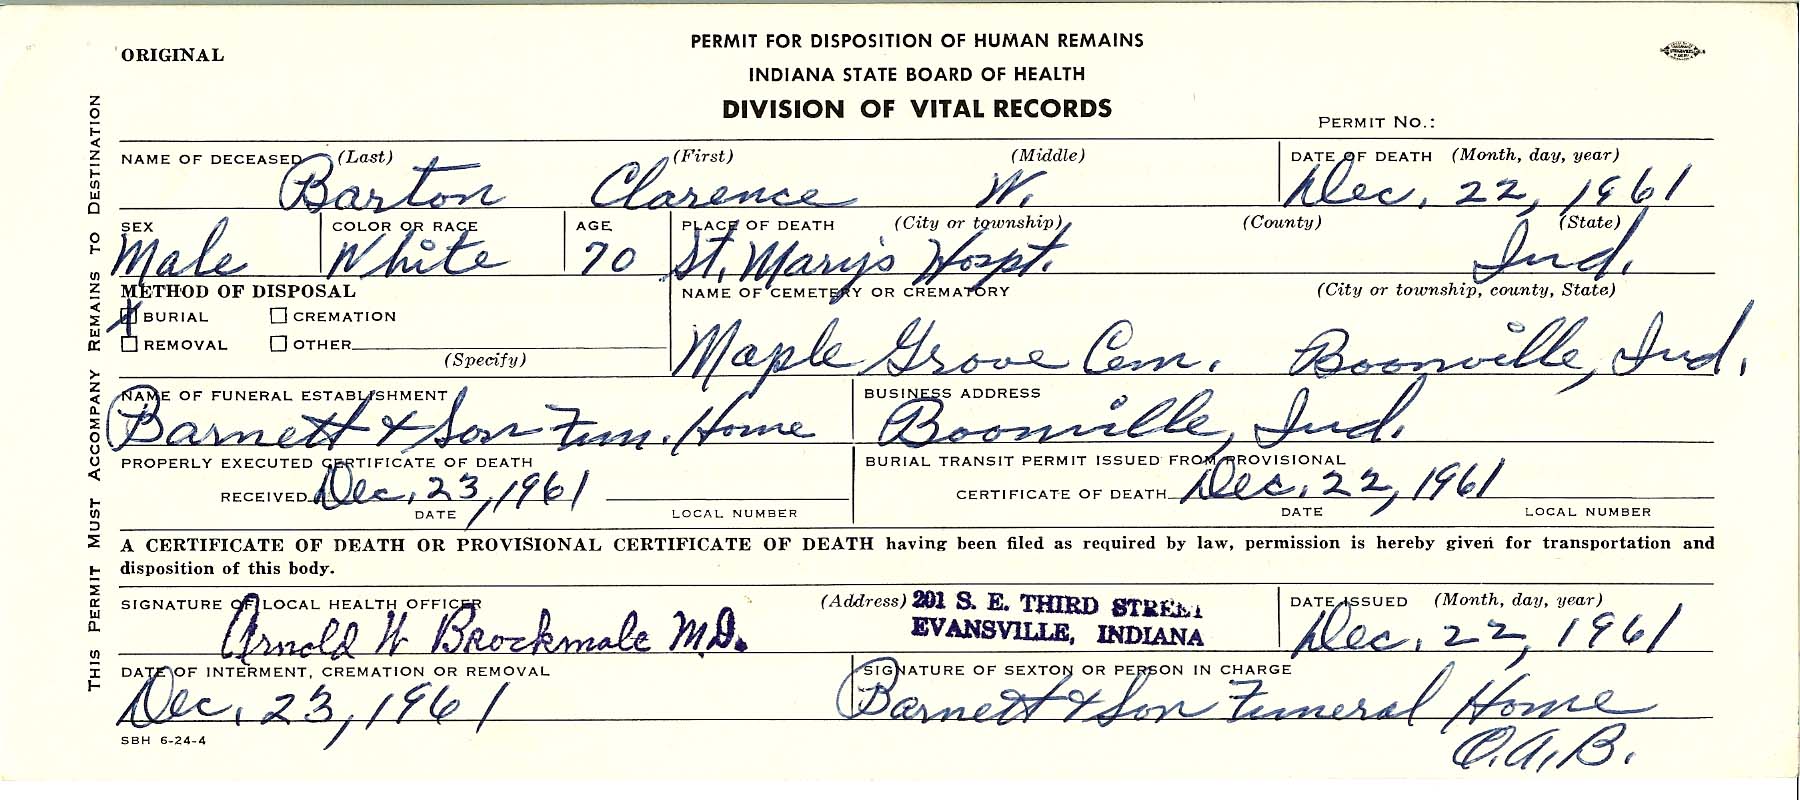 ORIGINAL
PERMIT FOR DISPOSITION OF HUMAN REMAINS
INDIANA STATE BOARD OF HEALTH
DIVISION OF VITAL RECORDS
PERMIT NO.:
THIS PERMIT MUST ACCOMPANY REMAINS TO DESTINATION
NAME OF DECEASED (Last) (First) (Middle) DATE OF DEATH (Month, day, year)
Barton Clarence W. Dec. 22, 1961
SEX COLOR OR RACE AGE PLACE OF DEATH (City or township) (County) (State)
Male White 70 St. Mary's Hospt. Ind.
METHOD OF DISPOSAL NAME OF CEMETERY OR CREMATORY (City or township, county, State)
X BURIAL CREMATION
REMOVAL OTHER
(Specify)
Maple Grove Cem. Boonville, Ind.
NAME OF FUNERAL ESTABLISHMENT BUSINESS ADDRESS
Barnett & Son Fun. Home Boonville, Ind.
PROPERLY EXECUTED CERTIFICATE OF DEATH BURIAL TRANSIT PERMIT ISSUED FROM PROVISIONAL
RECEIVED Dec. 23, 1961 CERTIFICATE OF DEATH Dec. 22, 1961
DATE LOCAL NUMBER DATE LOCAL NUMBER
A CERTIFICATE OF DEATH OR PROVISIONAL CERTIFICATE OF DEATH having been filed as required by law, permission is hereby given for transportation and
disposition of this body.
SIGNATURE OF LOCAL HEALTH OFFICER (Address) 201 S. E. THIRD STREET DATE ISSUED (Month, day, year)
Arnold W Brockmole M.D. EVANSVILLE, INDIANA Dec. 22, 1961
DATE OF INTERMENT, CREMATION OR REMOVAL SIGNATURE OF SEXTON OR PERSON IN CHARGE
Dec. 23, 1961 Barnett & Son Funeral Home
SBH 6-24-4 O.A.B.